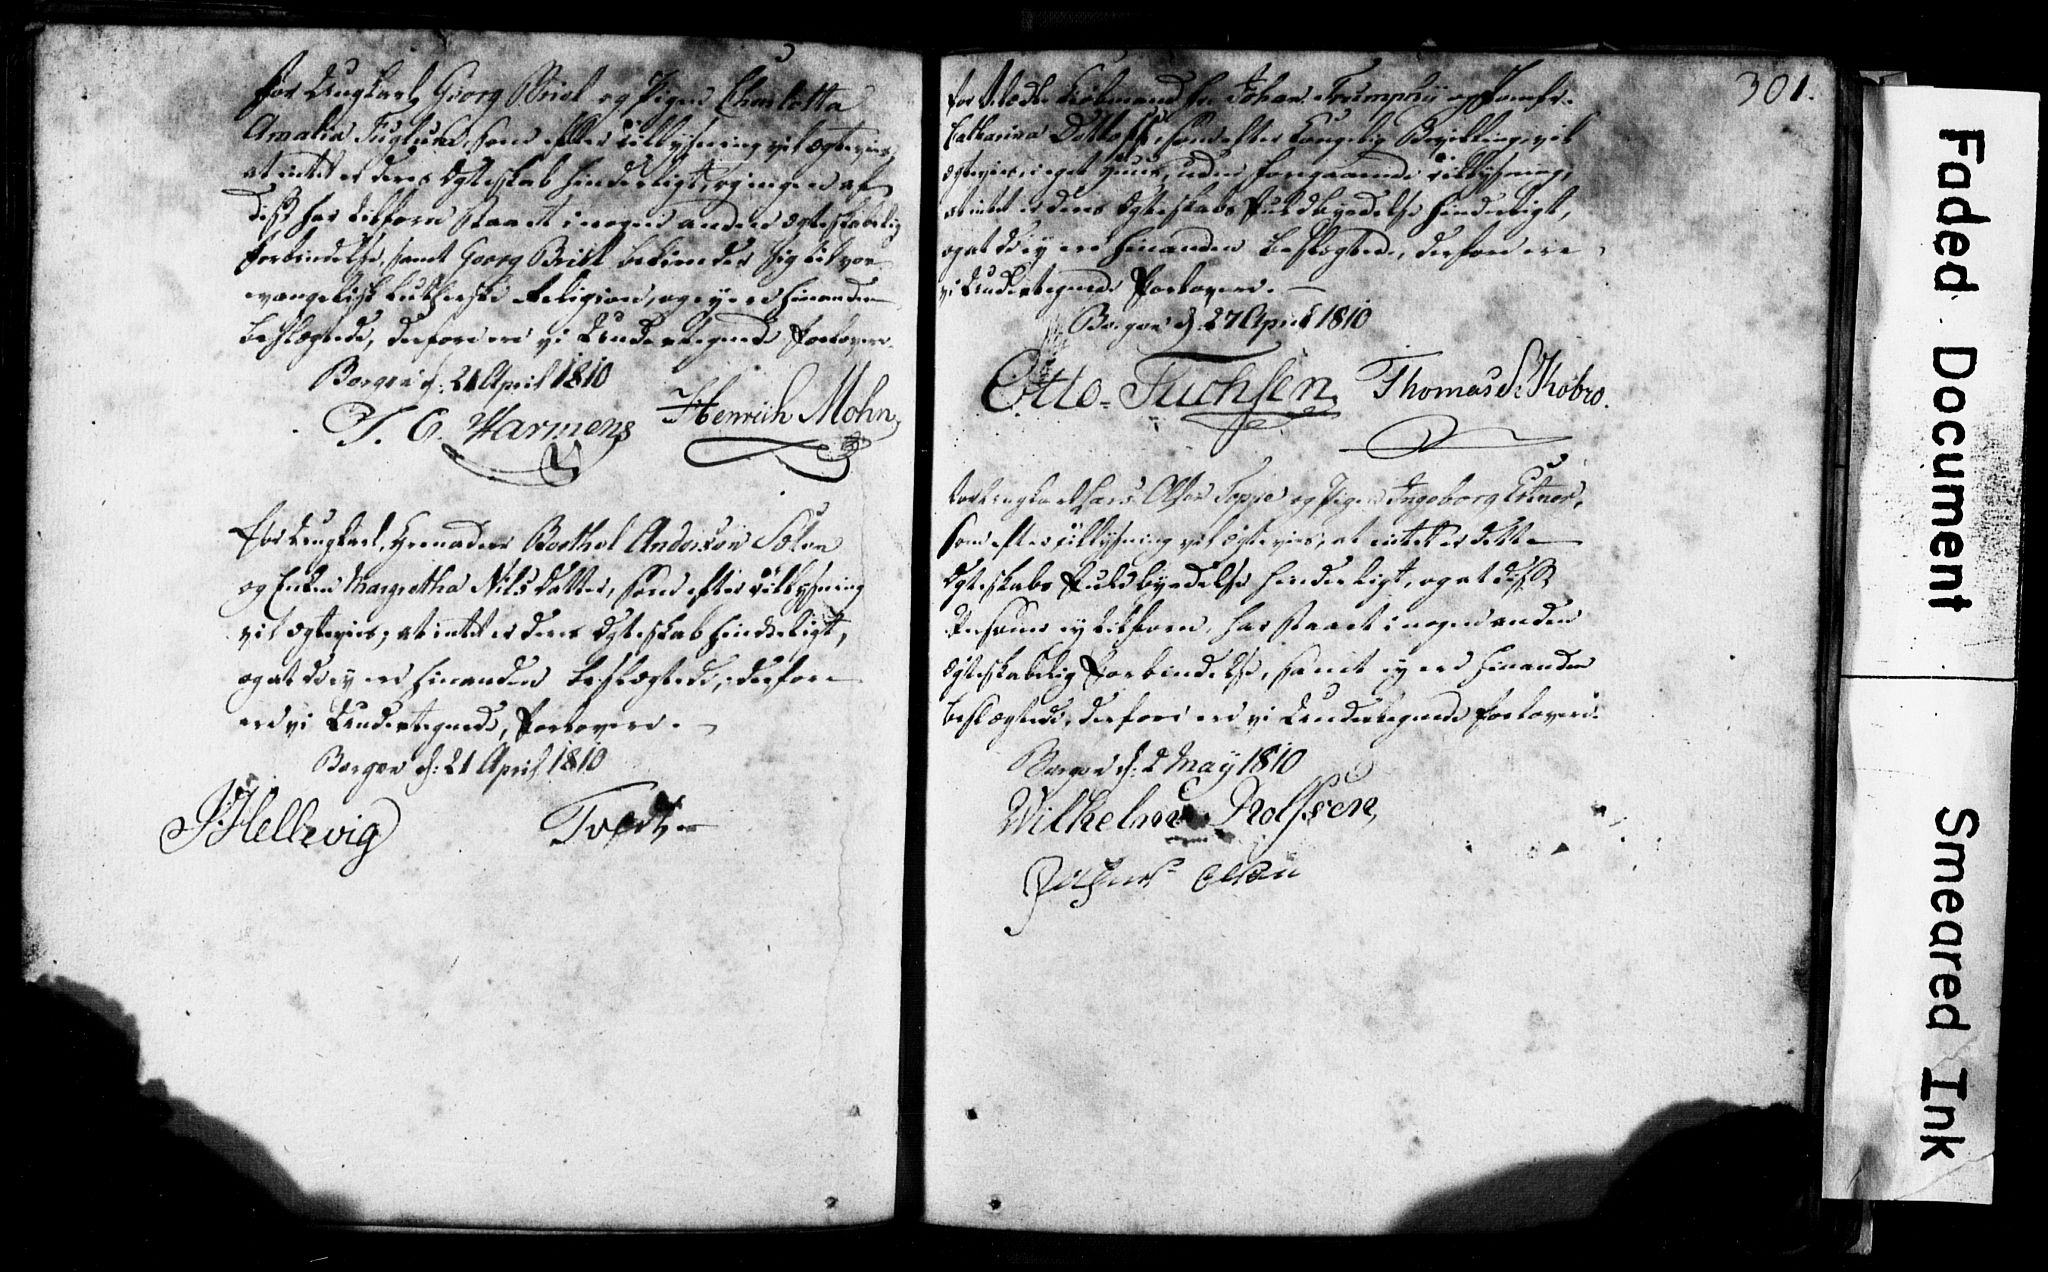 For Ungkarl Georg Briel og Pigen Charlotta
Amalia Fuglund, som efter Tillysning vil ægtevies,
at intet er deres Ægteskab hinderligt, og ingen af
disse har tilforn staaet i nogen anden ægteskabelig
forbindelse, samt Georg Briel bekiender sig til vor
evangelisk Lutherske Religion, og ey ere hinanden
beslægtede, derfore ere vi Undertegnede Forlovere.
Bergen d: 21 April 1810
J. C. Harmens Henrich Mohn
For Ungkarl, Grenadeer Berthel Anderson Solem
og Enken Margretha Nilsdatter, som efter Tillysning
vil ægtevies, at intet er deres Ægteskab hinderligt,
og at de ey ere hinanden beslægtede, derfore
ere vi Undertegnede, Forlovere.
Bergen d: 21 April 1810
J Hellwig
301.
for Kiøbmand Hr. Johan Trumphy og Jomfr.
Catharina som efter Kongelig Bevilling vil
ægtevies i eget Huus, uden foregaaende Tillysning,
at intet er deres Ægteskabs Fuldbyrdelse hinderligt,
og at de ey ere hinanden beslægtede, derfore ere
vi Undertegnede Forlovere.
Bergen d. 27 April 1810
Otto Fuchsen Thomas S: Kobro.
for Ungkarl Lars Olsen Toppe og Pigen Ingeborg
som efter Tillysning vil ægtevies, at intet er dette
Ægteskabs Fuldbyrdelse hinderligt, og at disse
Personer ey tilforn har staaet i nogen anden
Ægteskabelig Forbindelse, samt ey ere hinanden
beslægtede, derfore ere vi Undertegnede Forlovere.
Bergen d: 2 May 1810
Wilhelm Rolfsen
Faded Document
Smeared Ink